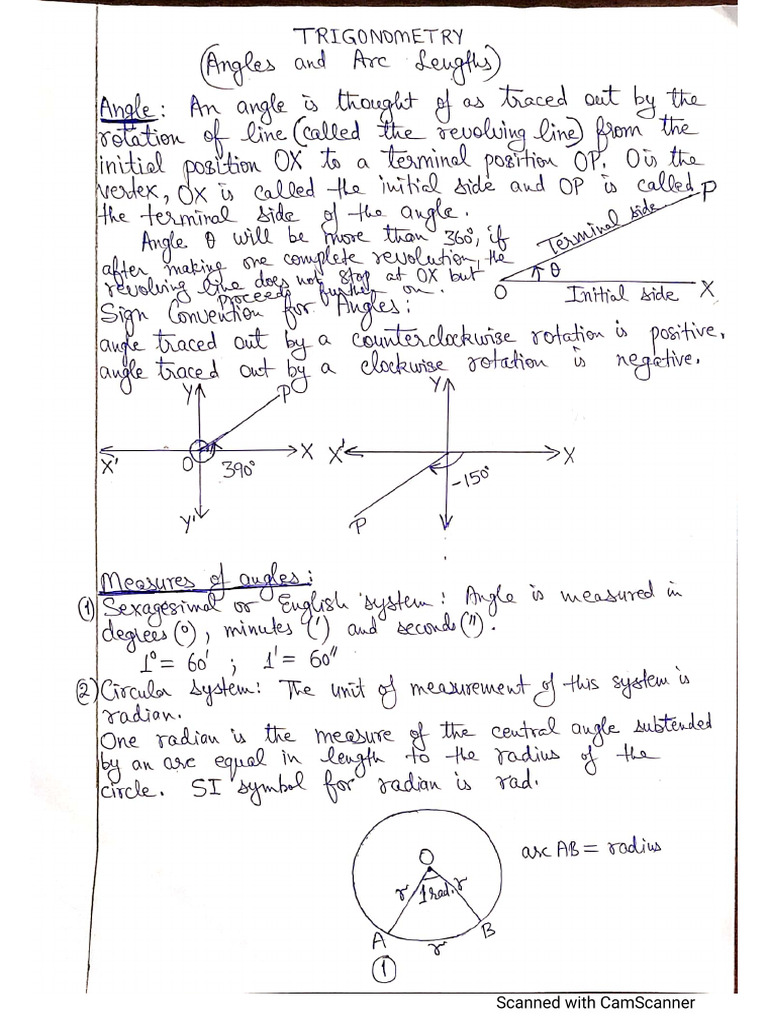 TRIGONOMETRY
(Angles and Arc Lengths)
Angle: An angle is thought of as traced out by the
rotation of line (called the revolving line) from the
initial position OX to a terminal position OP. O is the
vertex, OX is called the initial side and OP is called
the terminal side of the angle.
Angle θ will be more than 360°, if
after making one complete revolution the
revolving line does not stop at OX but
proceeds further on.
P
Terminal side
θ
O Initial side X
Sign Convention for Angles:
angle traced out by a counterclockwise rotation is positive,
angle traced out by a clockwise rotation is negative.
Y P Y
X' O X X' X
390° -150°
Y' P
Measures of angles:
① Sexagesimal or English system: Angle is measured in
degrees (°), minutes (') and seconds (").
1° = 60' ; 1' = 60"
② Circular System: The unit of measurement of this system is
radian.
One radian is the measure of the central angle subtended
by an arc equal in length to the radius of the
circle. SI symbol for radian is rad.
O
arc AB = radius
r 1 rad. r
A B
r
①
Scanned with CamScanner